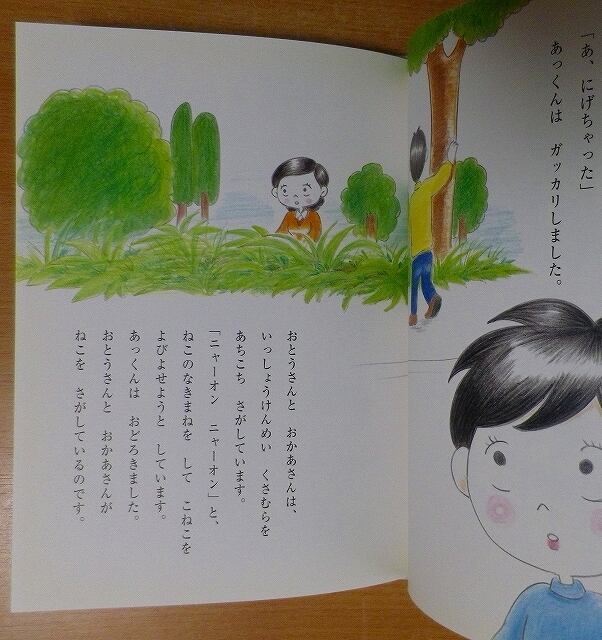 「あ、にげちゃった」
あっくんは ガッカリしました。
おとうさんと おかあさんは、
いっしょうけんめい くさむらを
あちこち さがしています。
「ニャーオン ニャーオン」と、
ねこのなきまねを して こねこを
よびよせようと しています。
あっくんは おどろきました。
おとうさんと おかあさんが
ねこを さがしているのです。